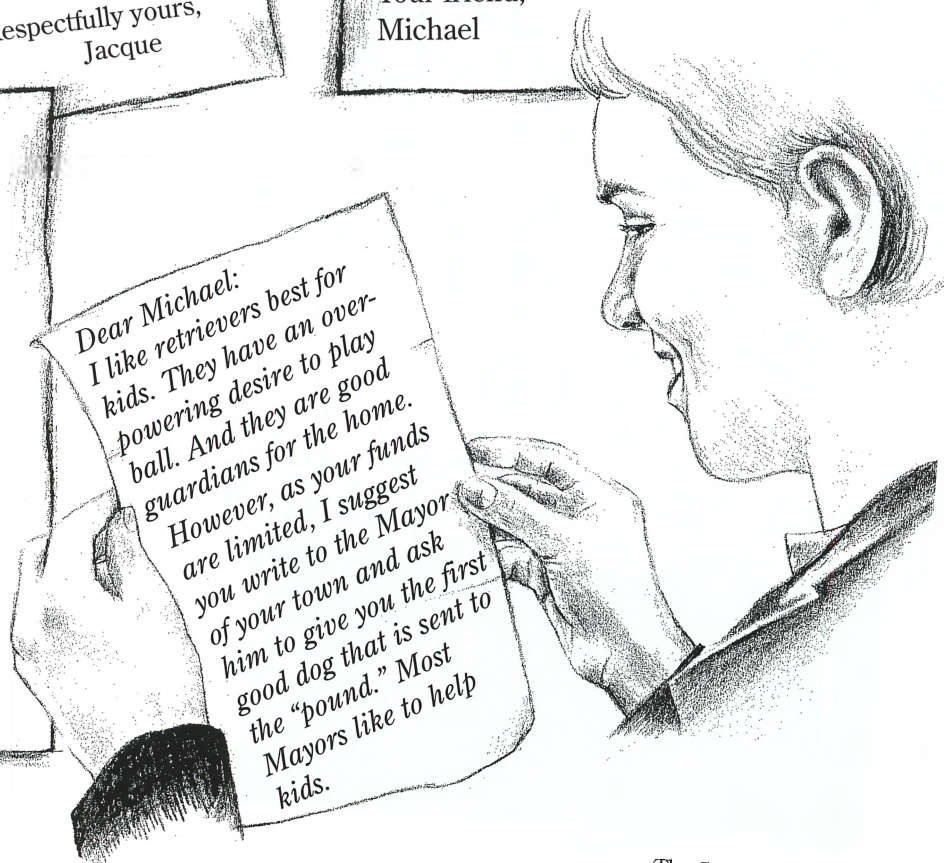 espectfully yours,
Jacque
Michael
Dear Michael:
I like retrievers best for
kids. They have an over-
powering desire to play
ball. And they are good
guardians for the home.
However, as your funds
are limited, I suggest
you write to the Mayor
of your town and ask
him to give you the first
good dog that is sent to
the “pound.” Most
Mayors like to help
kids.